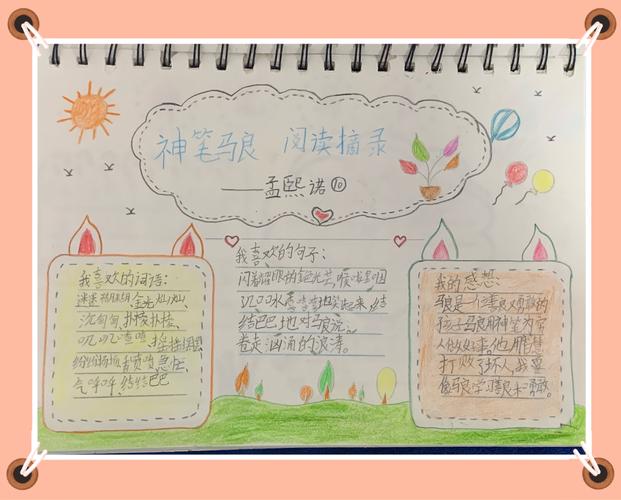 神笔马良 阅读摘录
——孟熙诺⑩
我喜欢的词语：
迷迷糊糊、金光灿灿、
沉甸甸、扑棱扑棱、
叽叽喳喳、摇摇摆摆
纷纷扬扬、急忙、
气呼呼、结结巴巴
我喜欢的句子：
闪着耀眼的金光芒，喉咙里咽
了口水，结
结巴巴地对马良说。
卷走汹涌的浪涛。
我的感想：
马良是一个善良又勇敢的
孩子马良用神笔为穷
人做好事。他用智慧
打败了坏人，我要
像马良学习善良和勇敢。